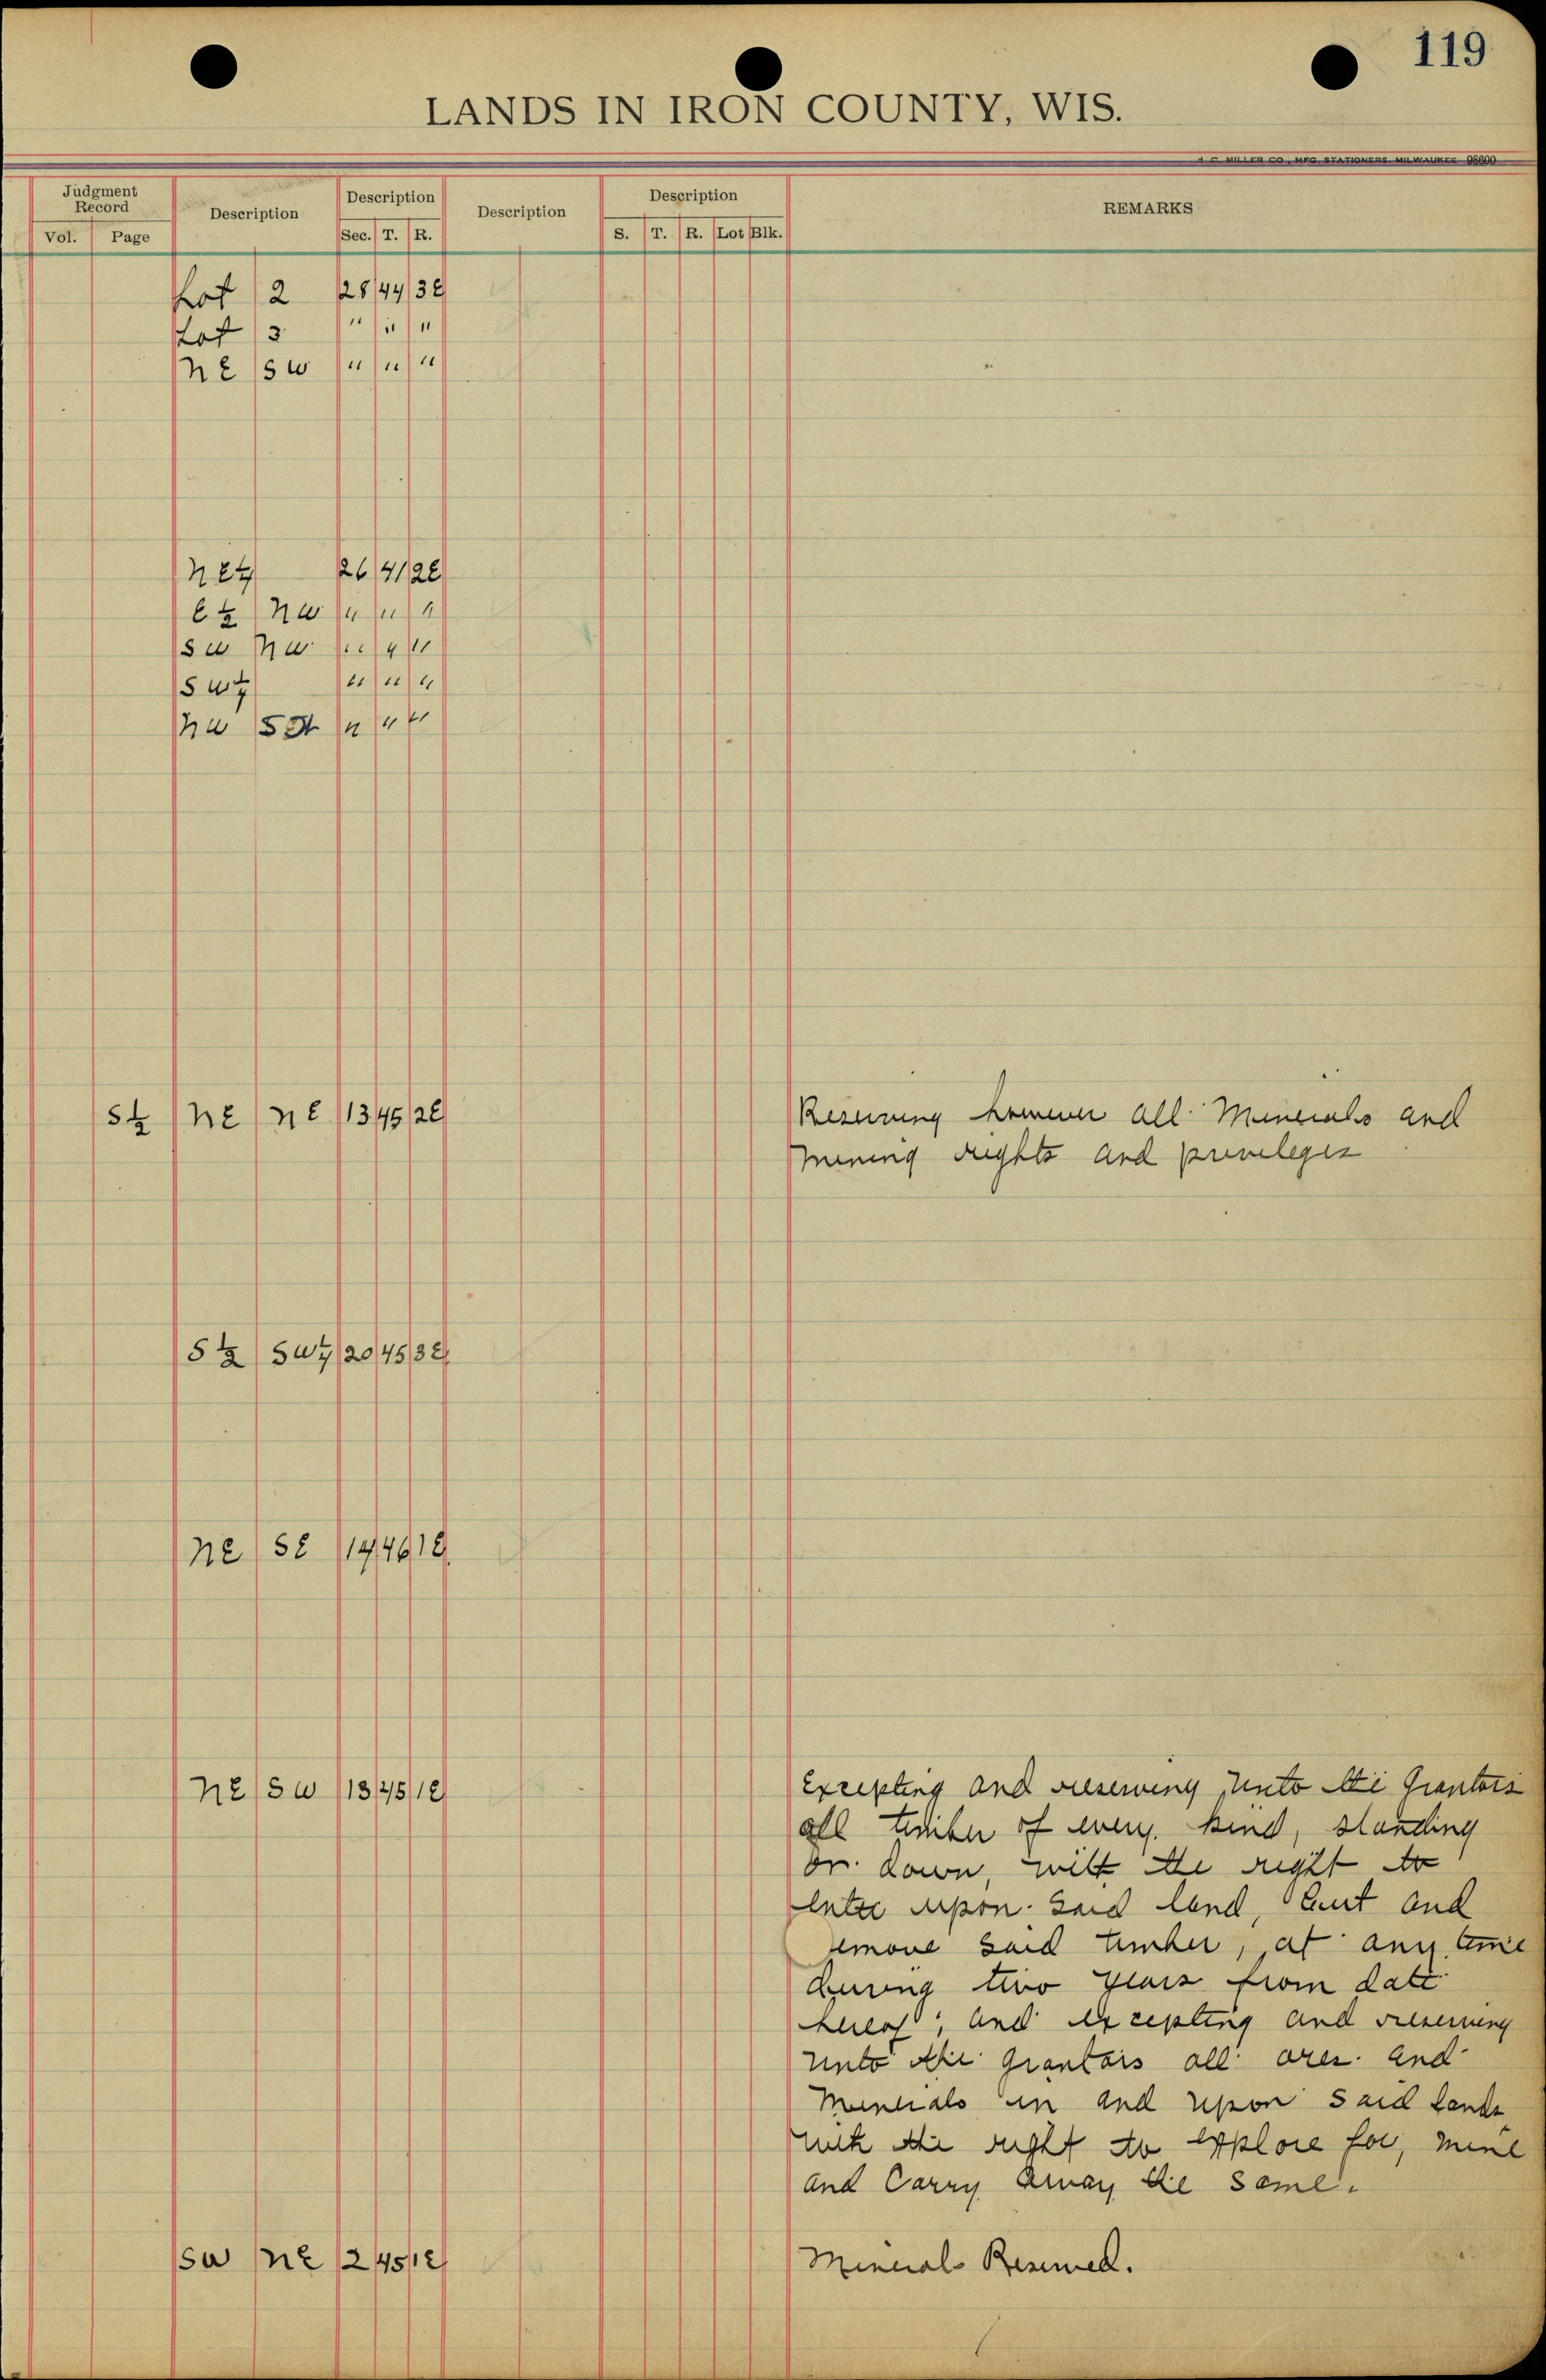 119
LANDS IN IRON COUNTY, WIS.
J. C. MILLER CO., MFG. STATIONERS, MILWAUKEE 98600
Judgment Record Description Description Description Description REMARKS
Vol. Page Sec. T. R. S. T. R. Lot Blk.
Lot 2 28 44 3E
Lot 3 " " "
NE SW " " "
NE¼ 26 41 2E
E½ NW " " "
SW NW " " "
SW¼ " " "
NW SE " " "
S½ NE NE 13 45 2E Reserving however all Minerals and
mining rights and privileges
S½ SW¼ 20 45 3E
NE SE 14 46 1E
NE SW 13 45 1E Excepting and reserving unto the Grantors
all timber of every kind, standing
or down, with the right to
enter upon said land, cut and
remove said timber, at any time
during two years from date
hereof; and excepting and reserving
unto the grantors all ores and
minerals in and upon said lands
with the right to explore for, mine
and Carry away the same.
SW NE 2 45 1E Minerals Reserved.